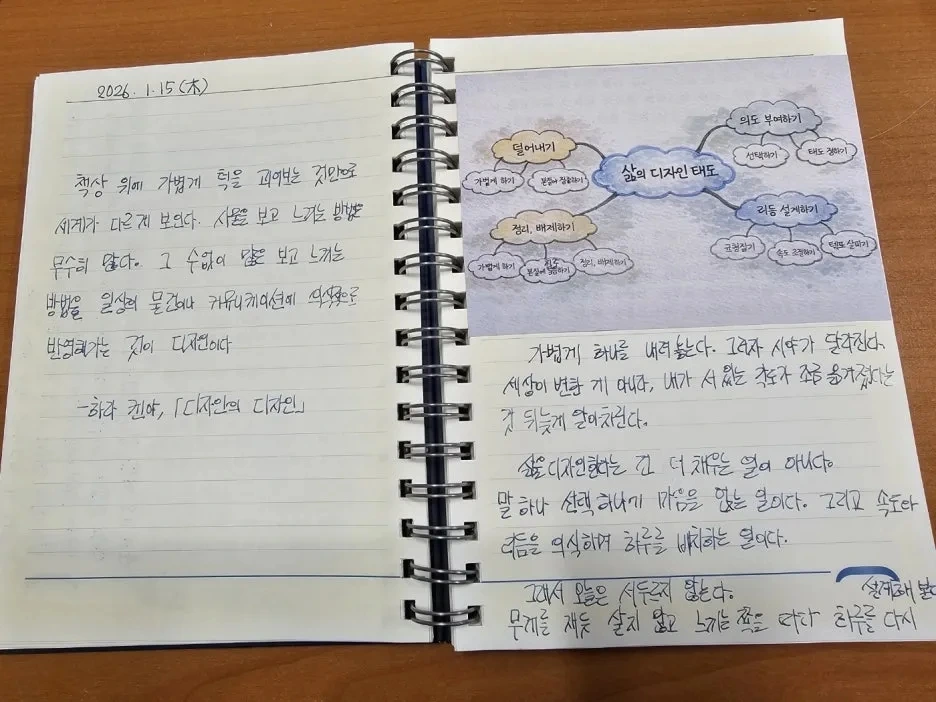 2026. 1. 15 (木)
책상 위에 가볍게 턱을 괴어보는 것만으로
세계가 다르게 보인다. 사물을 보고 느끼는 방법은
무수히 많다. 그 수없이 많은 보고 느끼는
방법을 일상의 물건이나 커뮤니케이션에 의식적으로
반영해가는 것이 디자인이다
-하라 켄야, 「디자인의 디자인」
삶의 디자인 태도
덜어내기
가볍게 하기
본질에 집중하기
정리, 배제하기
가볍게 하기
본질에
정리, 배제하기
의도 부여하기
선택하기
태도 정하기
리듬 설계하기
균형잡기
속도 조절하기
템포 살피기
가볍게 하나를 내려놓는다. 그러자 시야가 달라진다.
세상이 변한 게 아니라, 내가 서 있는 각도가 조금 옮겨졌다는
것 뒤늦게 알아차린다.
삶을 디자인한다는 건 더 채우는 일이 아니다.
말 하나 선택 하나에 마음을 얹는 일이다. 그리고 속도와
리듬을 의식하며 하루를 배치하는 일이다.
그래서 오늘은 서두르지 않는다.
무게를 재듯 살지 않고 느끼는 쪽을 따라 하루를 다시
설계해 본다